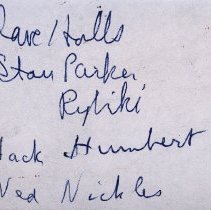 Dave Holls
Stan Parker
Rybiki
Jack Humbert
Ned Nickles